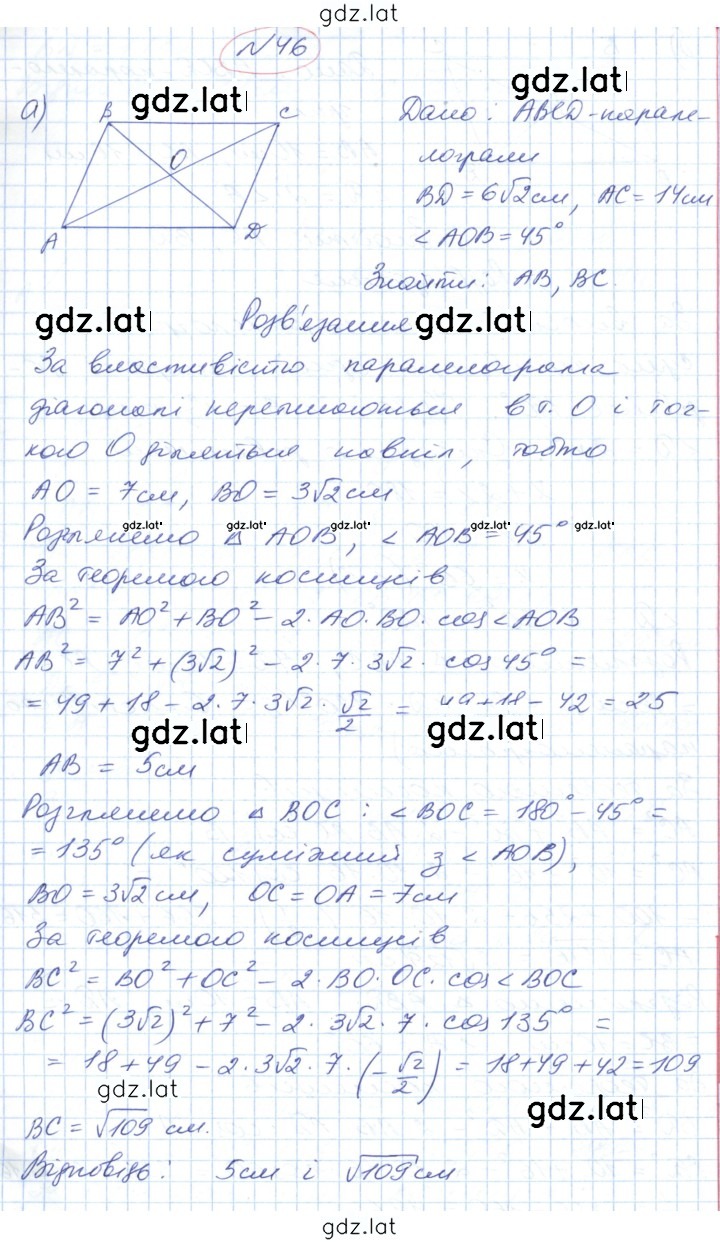 gdz.lat
№46
а) B gdz.lat C gdz.lat
Дано: ABCD - парале-
лограм
O
BD = 6√2 см, AC = 14 см
A D
< AOB = 45°
Знайти: AB, BC.
gdz.lat Розв'язання gdz.lat
За властивістю паралелограма
діагоналі перетинаються в т. O і точ-
кою O діляться навпіл, тобто
AO = 7 см, BO = 3√2 см
gdz.lat gdz.lat gdz.lat gdz.lat gdz.lat
Розглянемо △ AOB, < AOB = 45°
За теоремою косинусів
AB² = AO² + BO² - 2·AO·BO·cos<AOB
AB² = 7² + (3√2)² - 2·7·3√2·cos 45° =
= 49 + 18 - 2·7·3√2·√2/2 = 49 + 18 - 42 = 25
gdz.lat gdz.lat
AB = 5 см
Розглянемо △ BOC : < BOC = 180° - 45° =
= 135° (як суміжний з < AOB),
BO = 3√2 см, OC = OA = 7 см
За теоремою косинусів
BC² = BO² + OC² - 2·BO·OC·cos<BOC
BC² = (3√2)² + 7² - 2·3√2·7·cos 135° =
= 18 + 49 - 2·3√2·7·(-√2/2) = 18 + 49 + 42 = 109
gdz.lat gdz.lat
BC = √109 см.
Відповідь: 5 см і √109 см
gdz.lat